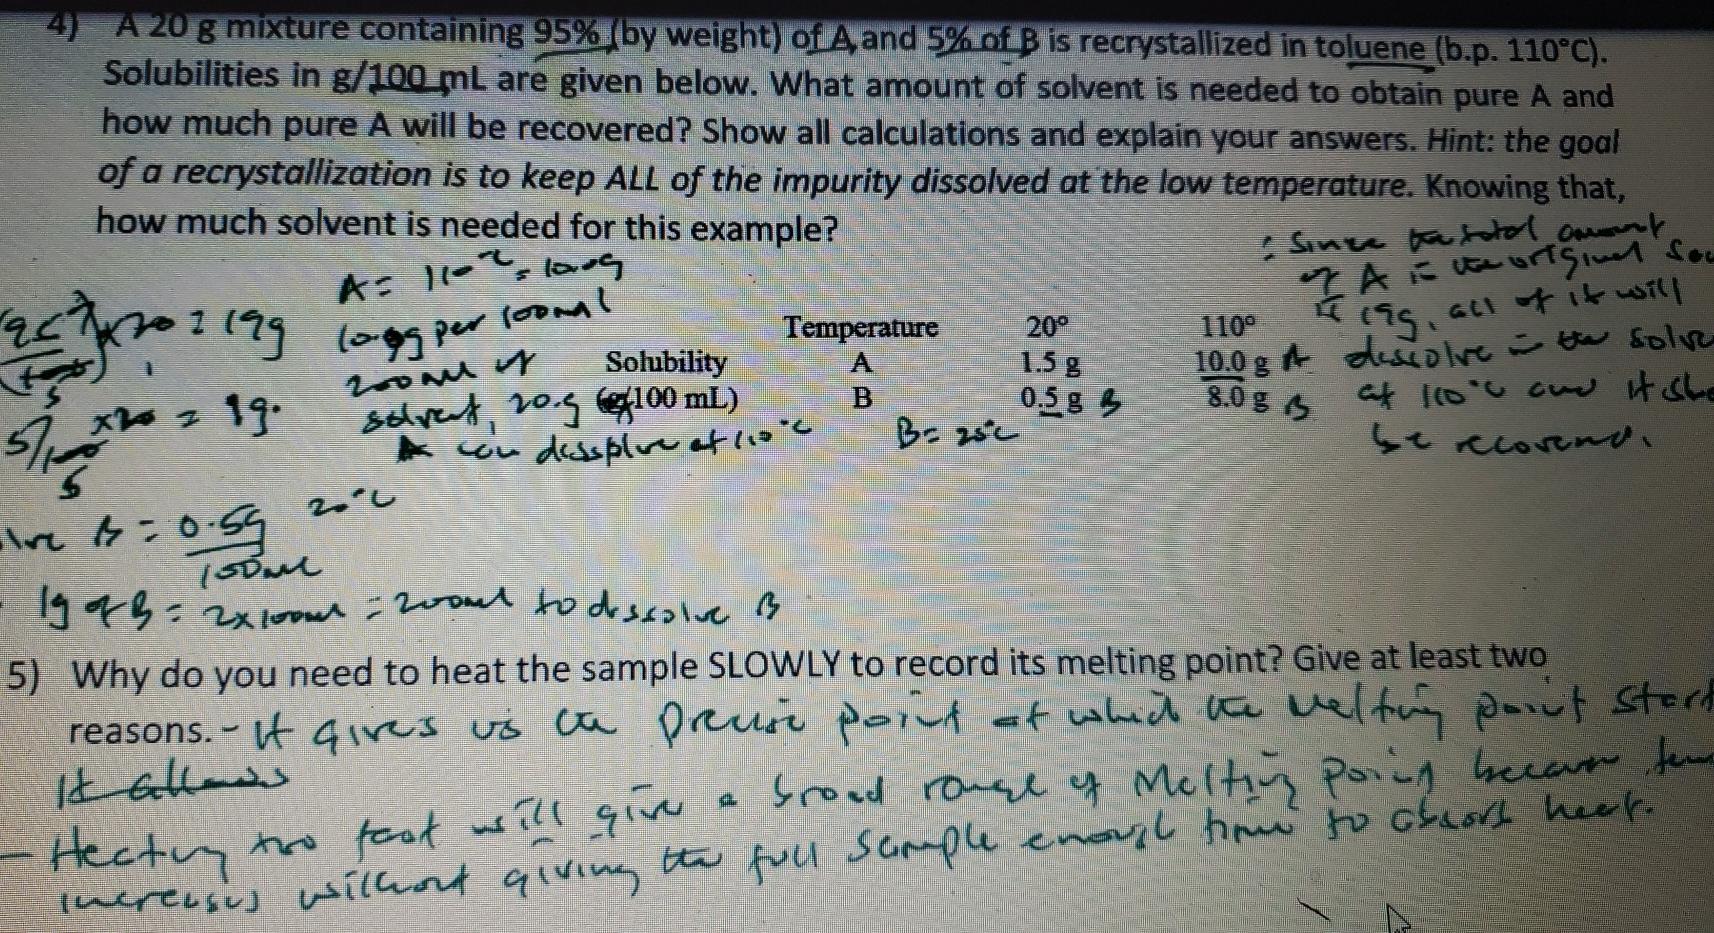 4) A 20 g mixture containing 95% (by weight) of A and 5% of B is recrystallized in toluene (b.p. 110°C).
Solubilities in g/100 mL are given below. What amount of solvent is needed to obtain pure A and
how much pure A will be recovered? Show all calculations and explain your answers. Hint: the goal
of a recrystallization is to keep ALL of the impurity dissolved at the low temperature. Knowing that,
how much solvent is needed for this example?
: Since the total amount
of A in the original
is 19g, all of it will
dissolve in the
at 110°C and it
be
A = 110°C = 10.0g
10.0g per 100ml
200ml of
solvent, 20.g
A can dissolve at 110°C
x20 = 19g
5/100 x20 = 1g.
Temperature 20° 110°
Solubility A 1.5 g 10.0 g A
(g/100 mL) B 0.5 g B 8.0 g B
B = 25°C
B = 0.5g 20°C
100ml
1g of B = 2x100ml = 200ml to dissolve B
5) Why do you need to heat the sample SLOWLY to record its melting point? Give at least two
reasons. - It gives us the precise point at which the melting point
It allows
- Heating too fast will give a broad range of Melting Point because
increases without giving the full sample enough time to absorb heat.